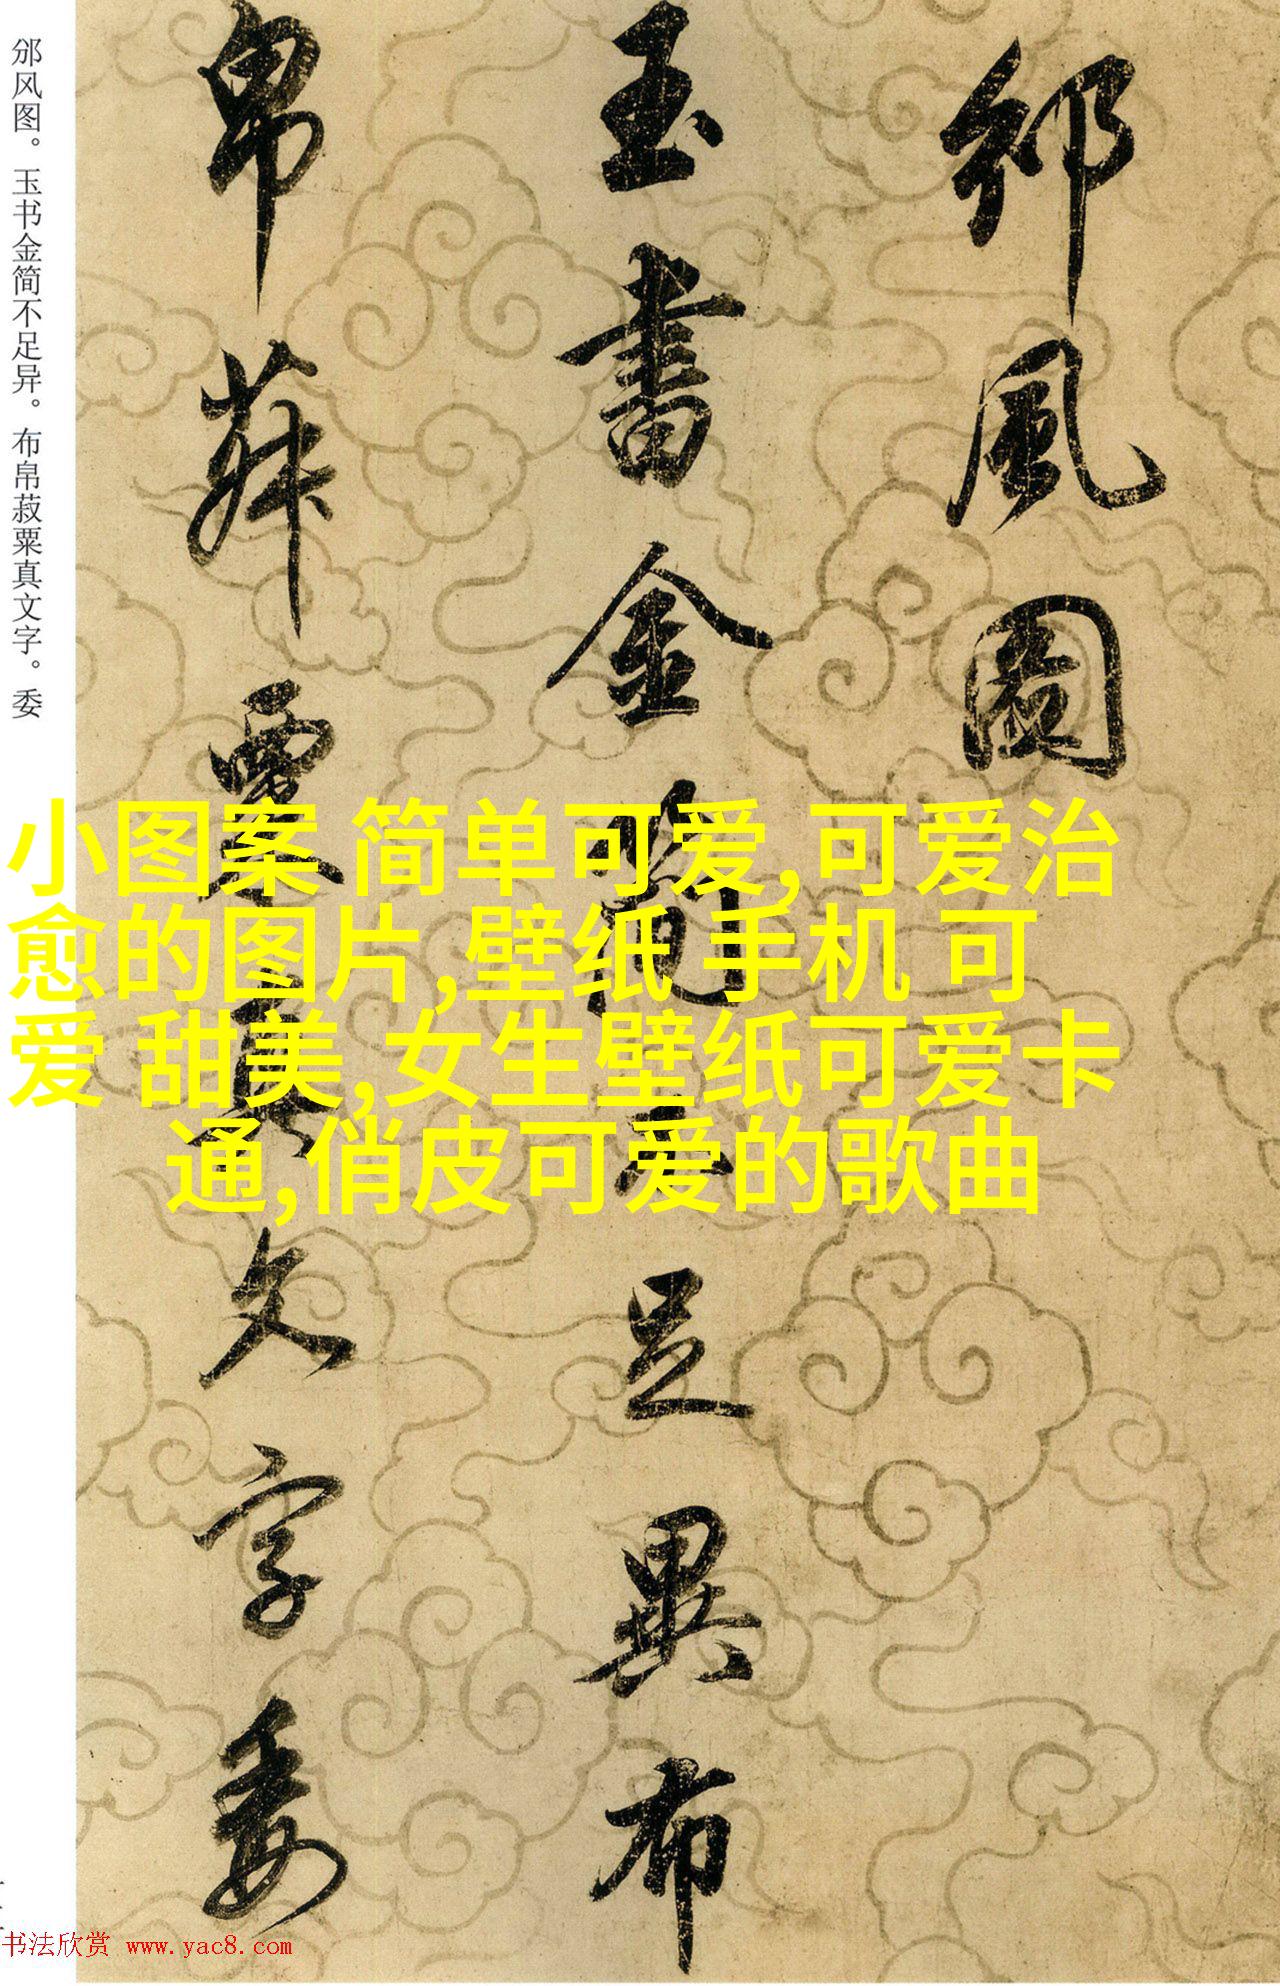 邠風圖
玉書金簡不足異布
帛菽粟真文字委
邠风图。玉书金简不足异。布帛菽粟真文字。委
小图案 简单可爱,可爱治
愈的图片,壁纸 手机 可
爱 甜美,女生壁纸可爱卡
通,俏皮可爱的歌曲
书法欣赏 www.yac8.com